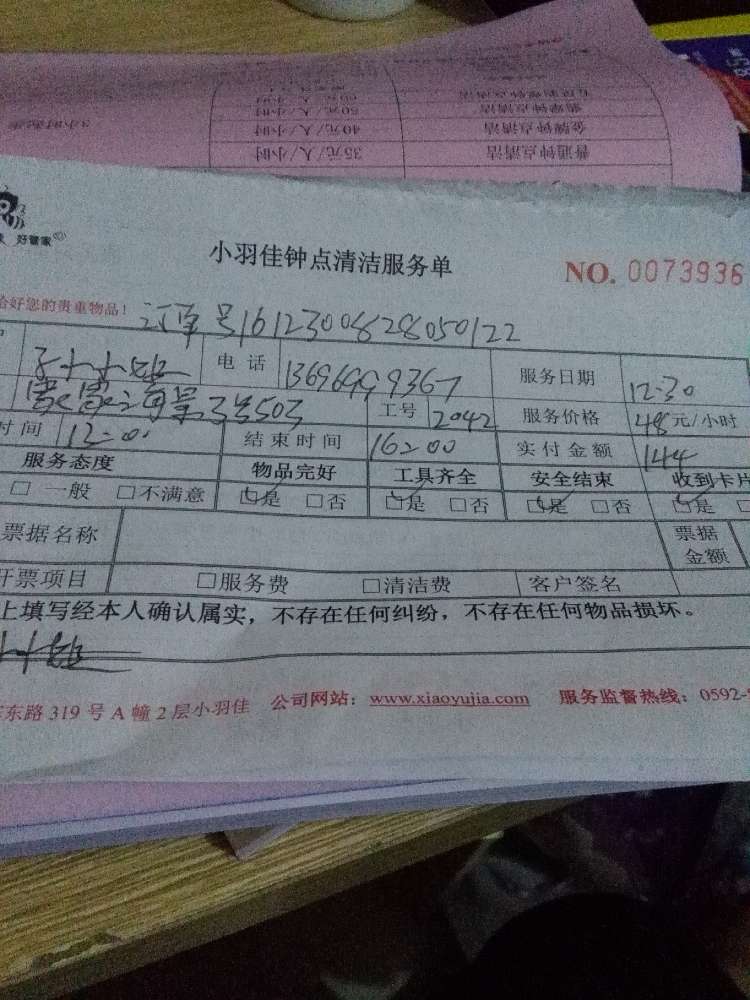 3小时起步
五星钟点清洁
60元/人/小时
翡翠钟点清洁
50元/人/小时
金牌钟点清洁
40元/人/小时
普通钟点清洁
35元/人/小时
好管家
小羽佳钟点清洁服务单
NO. 0073936
好您的贵重物品! 订单号1612300828050122
电话 13696999367 服务日期 12-30
3号503 工号 2042 服务价格 48元/小时
时间 13:00 结束时间 16:00 实付金额 144
服务态度 物品完好 工具齐全 安全结束 收到卡片
□一般 □不满意 ☑是 □否 ☑是 □否 ☑是 □否 ☑是
票据名称 票据金额
开票项目 □服务费 □清洁费 客户签名
上填写经本人确认属实，不存在任何纠纷，不存在任何物品损坏。
东路319号A幢2层小羽佳 公司网站：www.xiaoyujia.com 服务监督热线：0592-